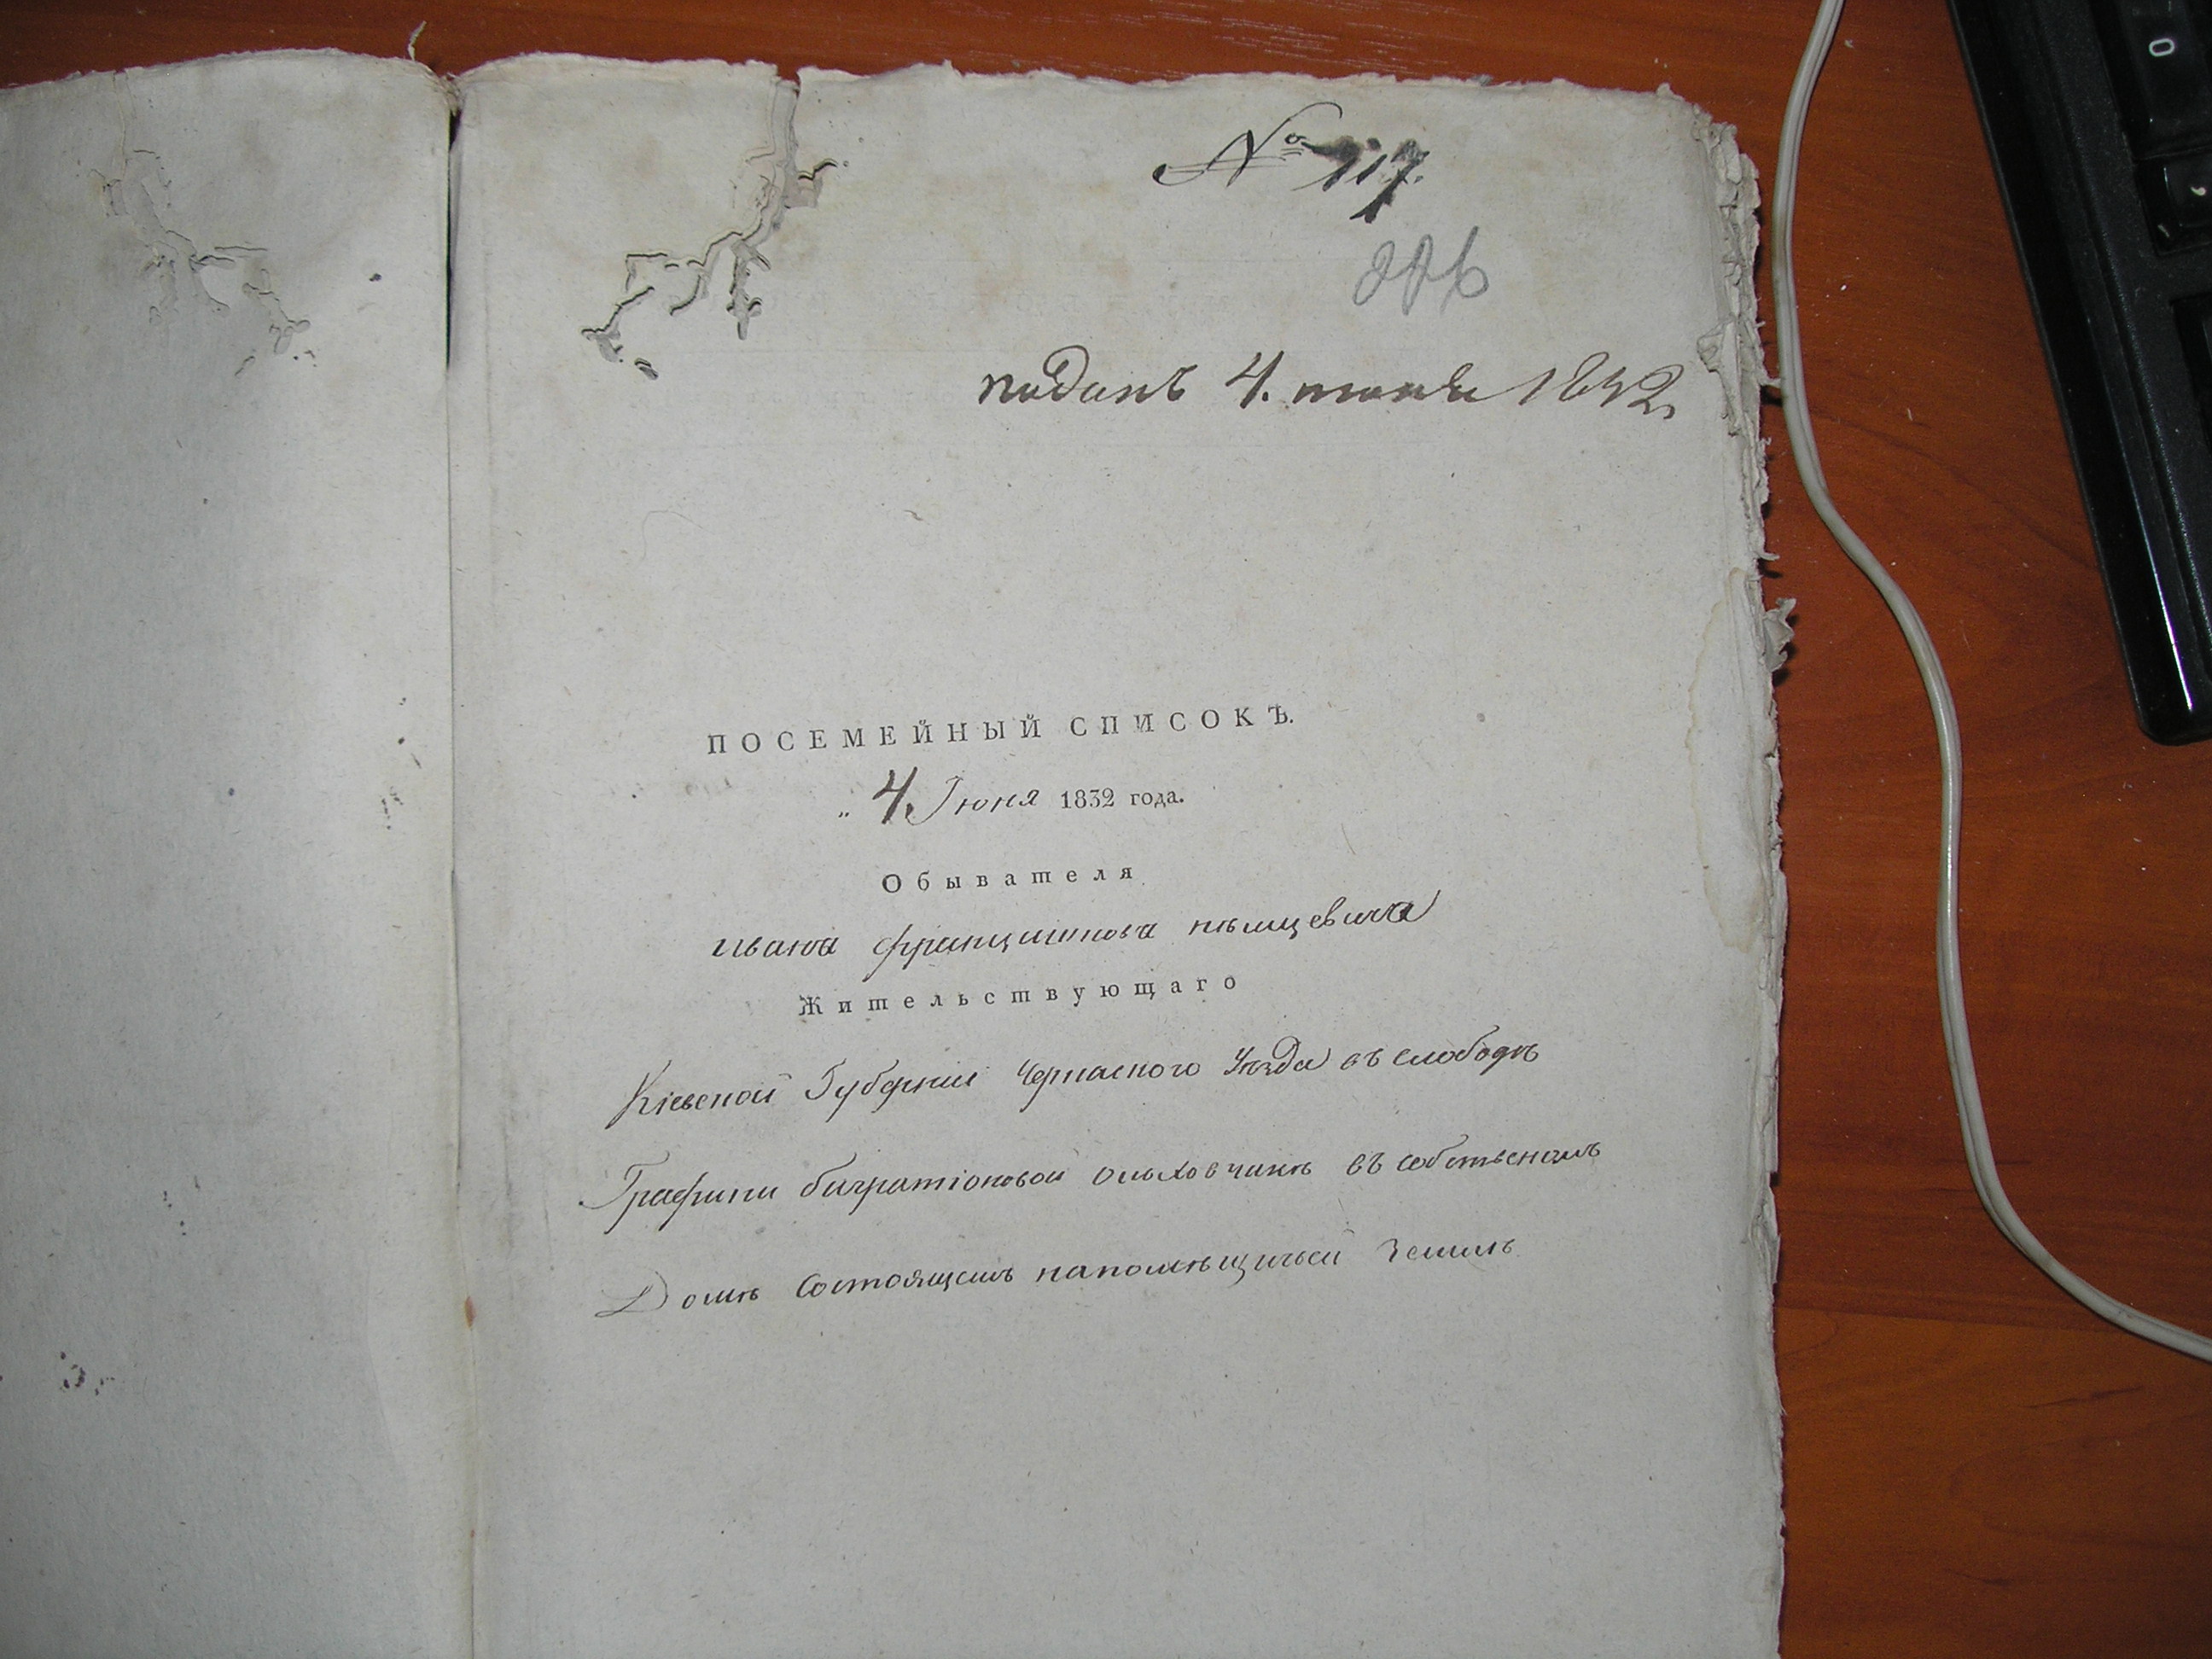 № 117.
поданъ 4. июня 1832
ПОСЕМЕЙНЫЙ СПИСОКЪ.
„ 4. Іюня 1832 года.
Обывателя
ивана францишкова нѣмцевича
Жительствующаго
Кіевской Губерніи Черкаского Уѣзда въ слободѣ
Графини багратіоновой ольховчикѣ въ собственомъ
Домѣ состоящемъ напомѣщичьейЗемлѣ
0
,